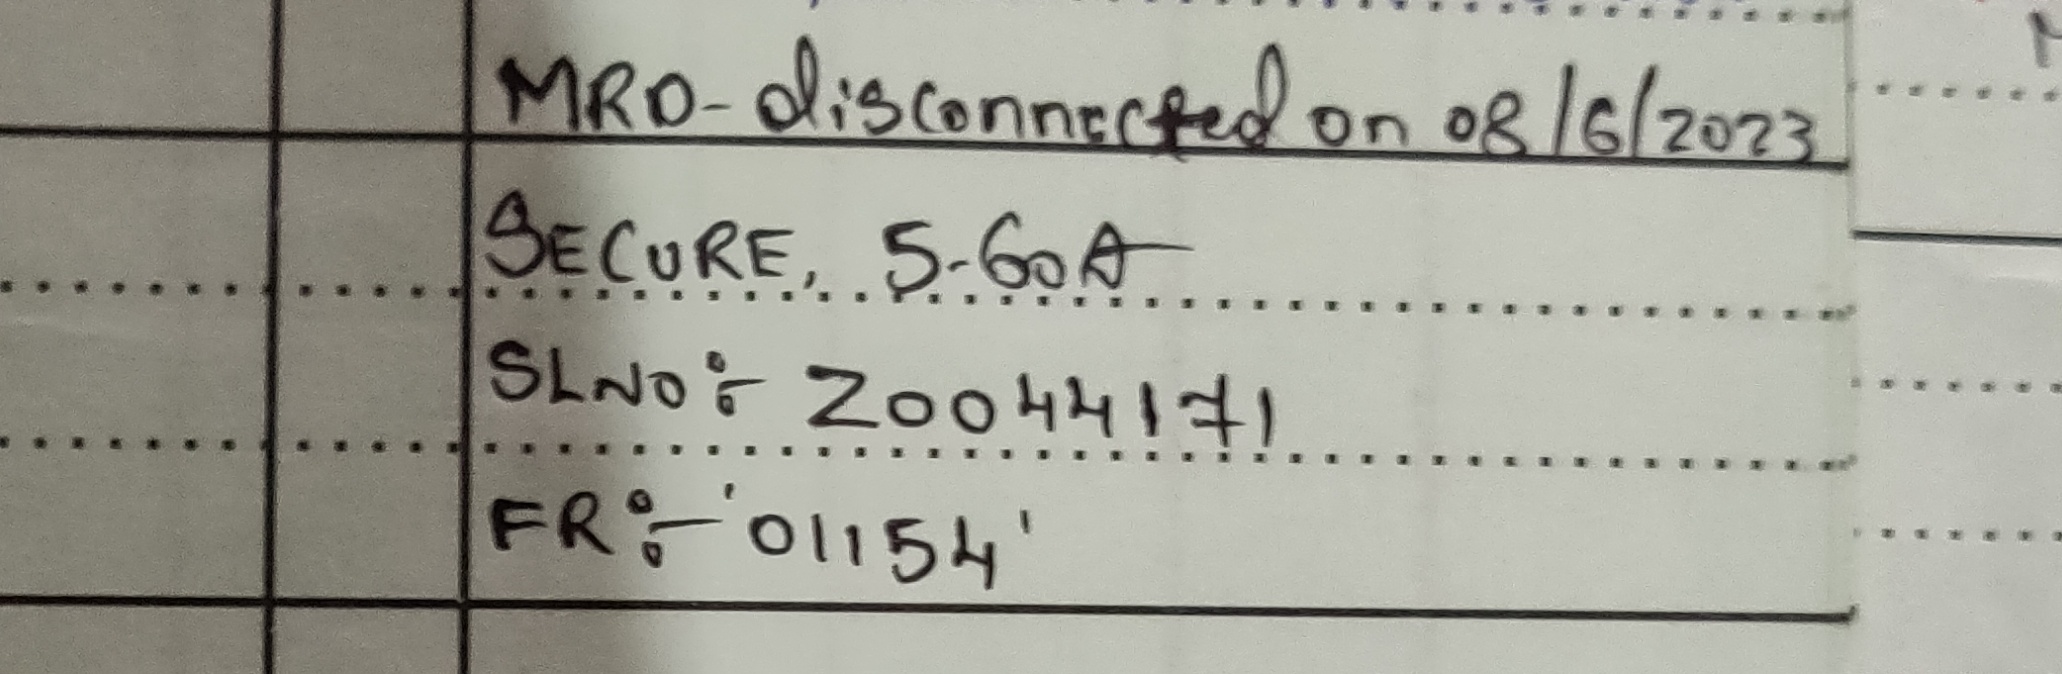 MRO-disconnected on 08/6/2023
SECURE, 5-60A
SLNO:- Z0044171
FR:- '01154'